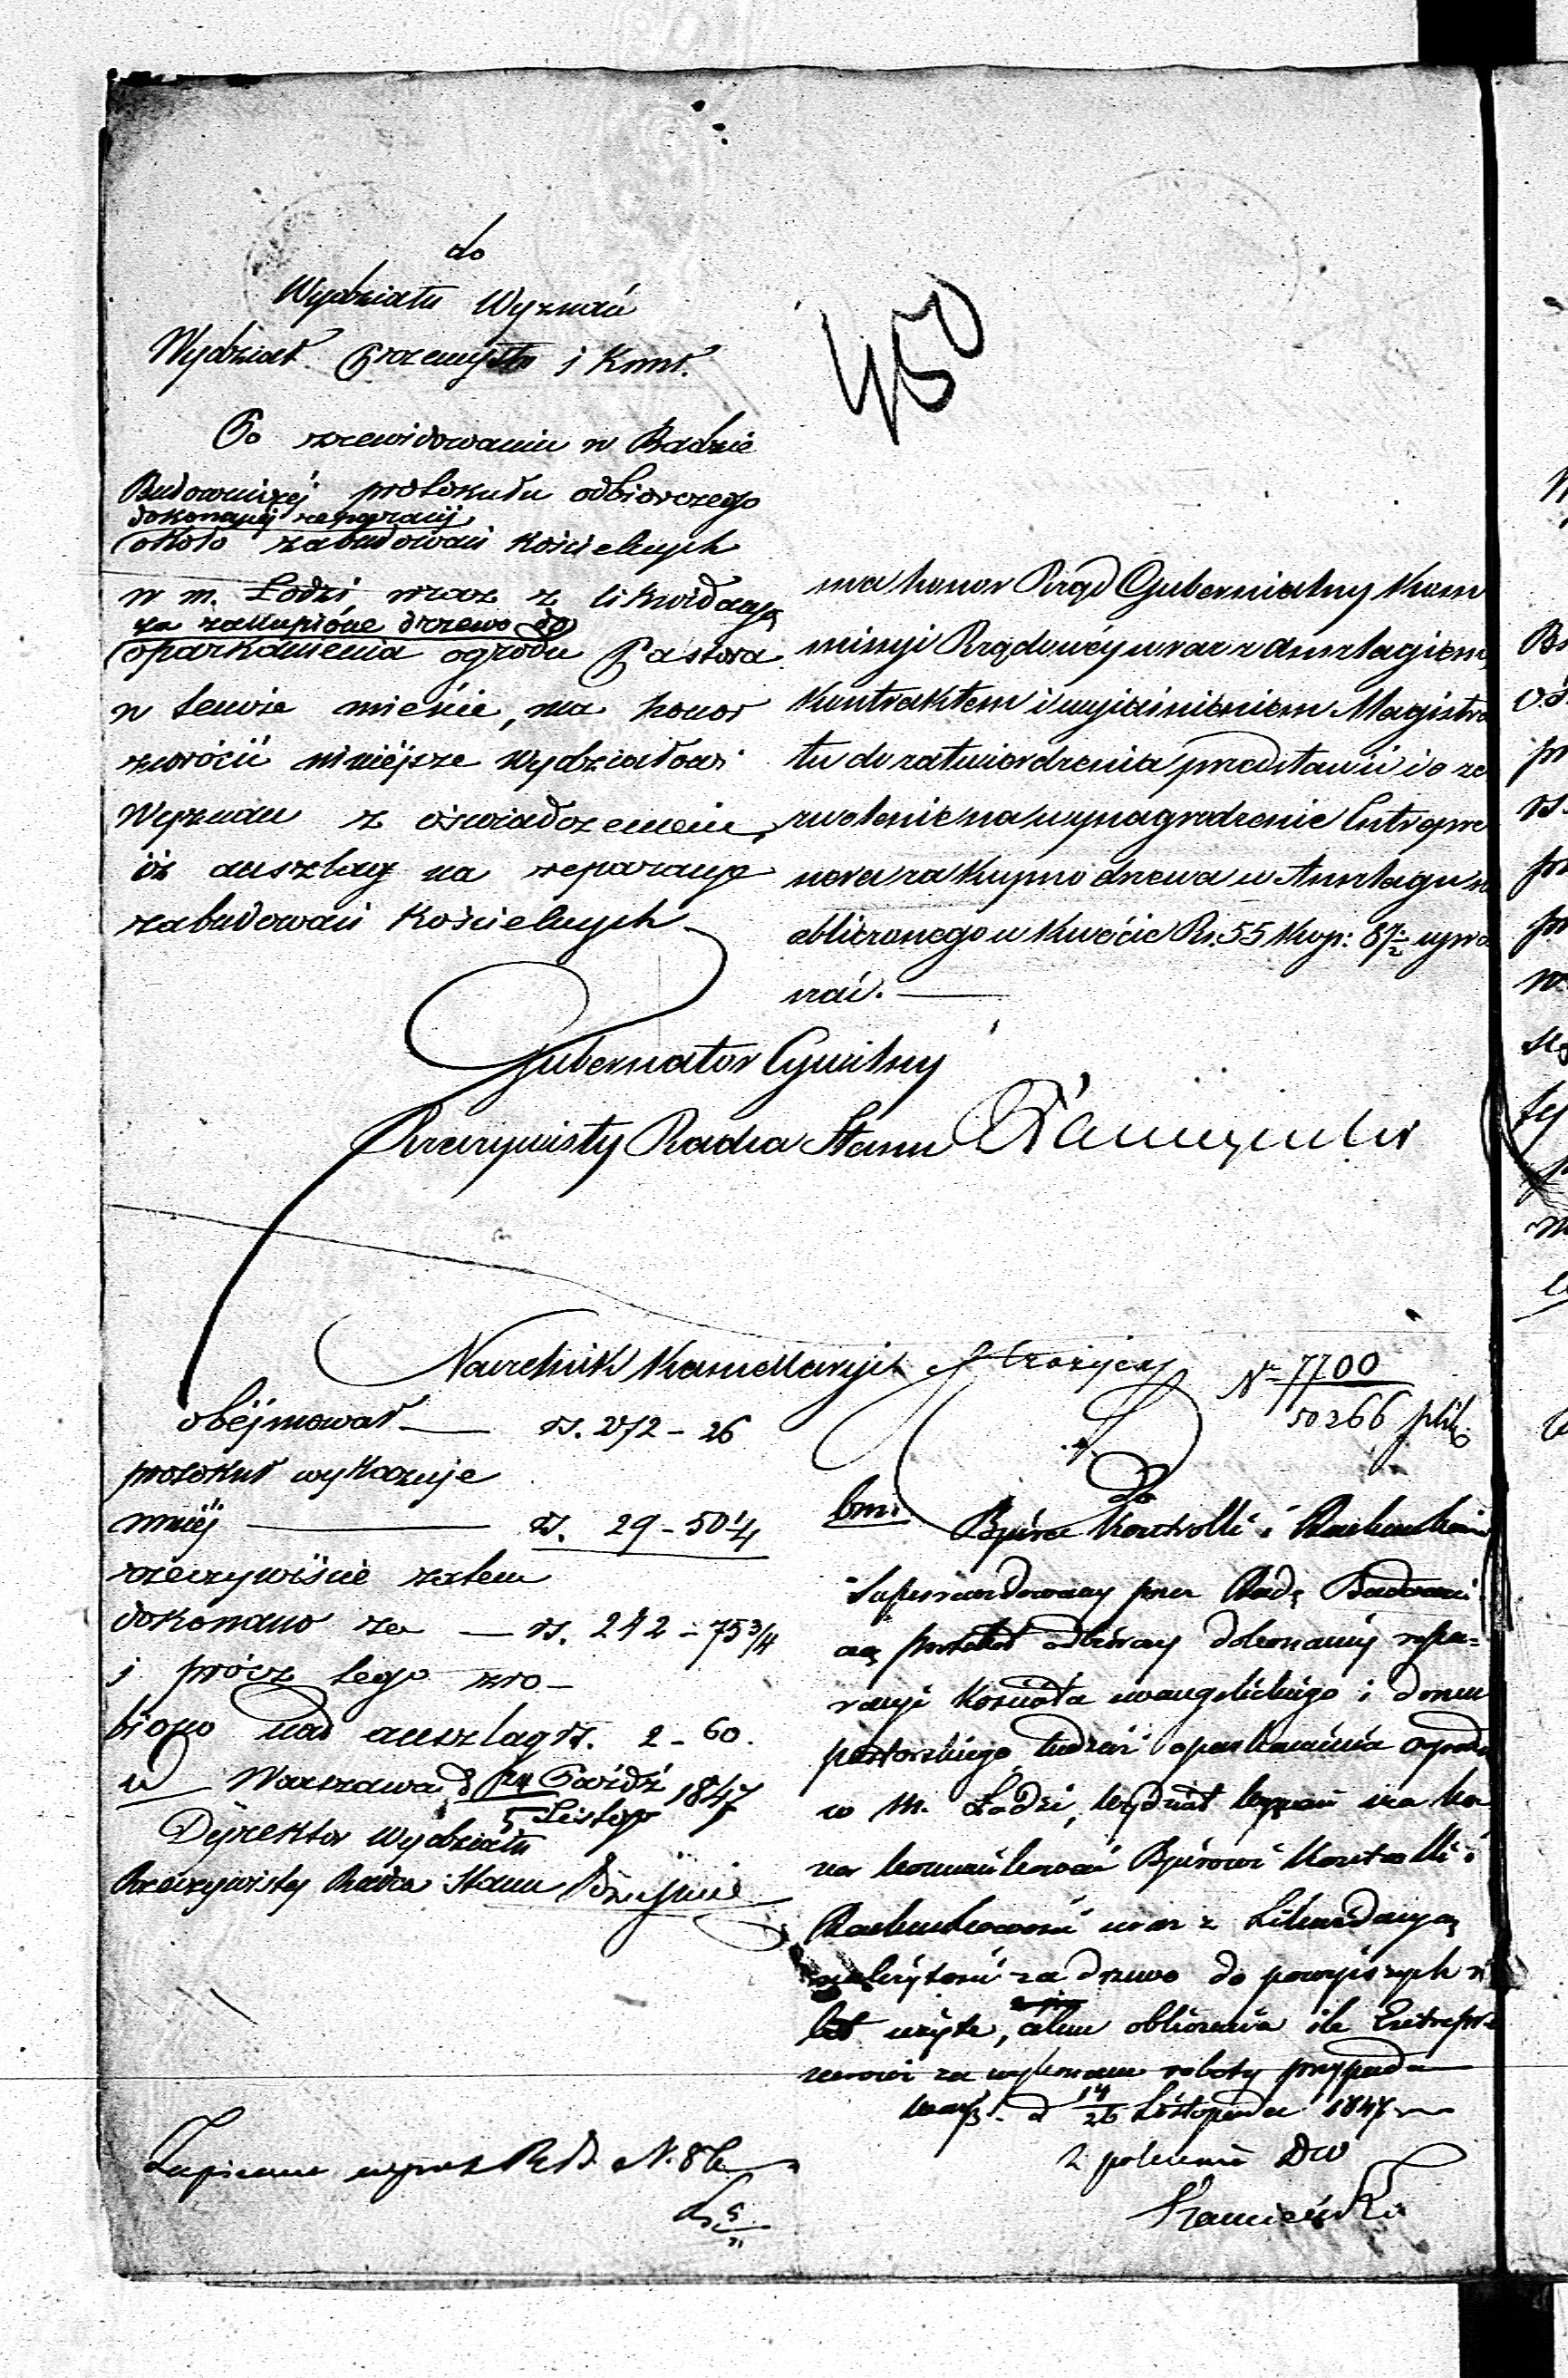 do
Wydziału Wyznań
Wydział Przemysłu i Kunsz.
Po zrewidowaniu w Radzie
Budowniczej protokułu odbiorczego
dokonanej reparacyi
około zabudowań Kościelnych
w m. Łodzi wraz z likwidacyą
za zakupione drzewo do
oparkanienia ogrodu Pastora
w temże mieście, ma honor
zwrócić niniejsze Wydziałowi
Wyznań z oświadczeniem,
iż anszlag na reparacye
zabudowań Kościelnych
450
ma honor Rząd Gubernialny Kom
missyi Rządowéy wraz z Anszlagiem
Kontraktem i wyjaśnieniem Magistra
tu do zatwierdzenia przedstawić i o ze
zwolenie na wynagrodzenie Entrepre
nera za kupno drzewa w Anszlagu n
obliczonego w kwocie Rs. 55 kop: 87½ upra
szać.
Gubernator Cywilny
Rzeczywisty Radca Stanu
Naczelnik Kancellaryi
obéjmował rs. 272 - 26
protokuł wykazuje
mniéj rs. 29 - 50¼
rzeczywiście zatem
dokonano za rs. 242 - 75¾
i prócz tego zro-
biono nad anszlag rs. 2 - 60.
w Warszawa d 24 Paździ 1847
5 Listop
Dyrektor Wydziału
Rzeczywisty Radca Stanu
N 7700
50266
do
Bjóra Kontrolli i Rachunkow
Superrewidowany przez Radę Budowni
czą protokół odbiorczy dokonanéj repa-
racyi Kościoła ewangelickiego i domu
pastorskiego tudzież oparkanienia ogrodu
w m. Łodzi, Wydział Wyznań ma ho
nor kommunikować Bjórowi Kontrolli i
Rachunkowości wraz z Likwidacyą
należytości za drzewo do powyższych r
bót użyte, celem obliczenia ile Entrepre
nerowi za wykonane roboty przypada
Warsz. d 14/26 Listopada 1847
Z polecenia DW
N. 86